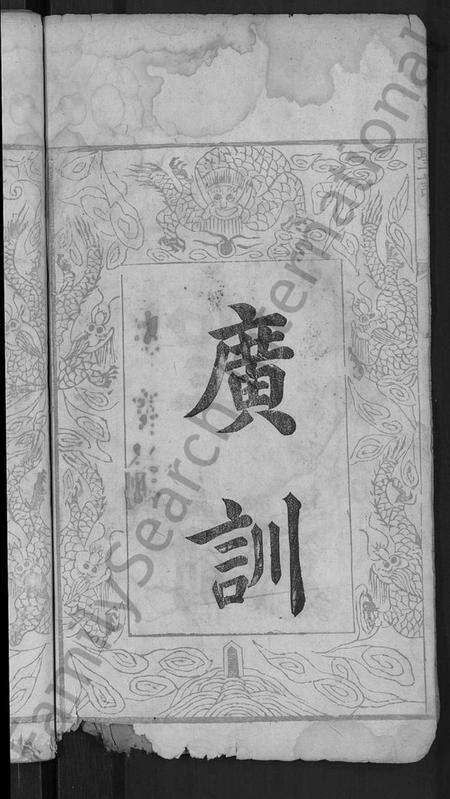 廣訓
FamilySearch International